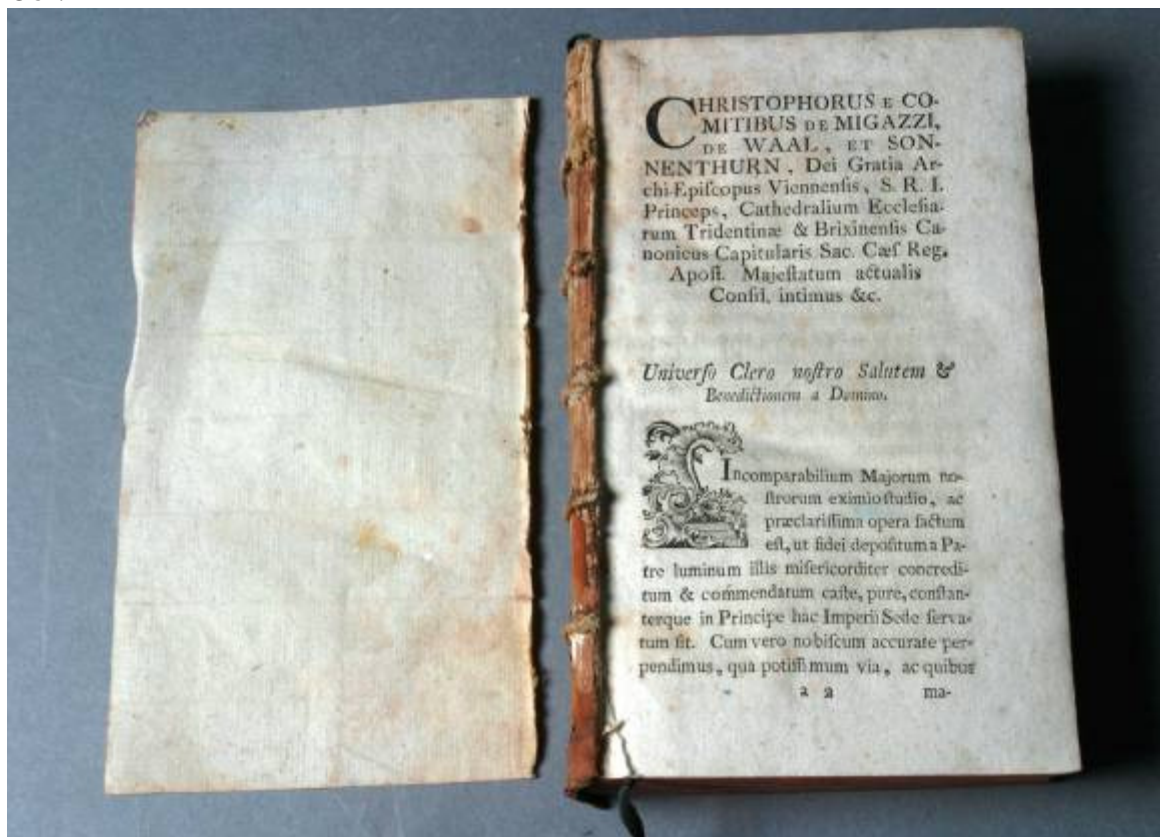 CHRISTOPHORUS E CO-
MITIBUS DE MIGAZZI,
DE WAAL, ET SON-
NENTHURN, Dei Gratia Ar-
chi-Epiſcopus Viennenſis, S. R. I.
Princeps, Cathedralium Eccleſia-
rum Tridentinæ & Brixinenſis Ca-
nonicus Capitularis Sac. Cæſ Reg.
Apoſt. Majeſtatum actualis
Conſil. intimus &c.
Univerſo Clero noſtro Salutem &
Benedictionem a Domino.
Incomparabilium Majorum no-
ſtrorum eximio ſtudio, ac
præclariſſima opera factum
eſt, ut fidei depoſitum a Pa-
tre luminum illis miſericorditer concredi-
tum & commendatum caſte, pure, conſtan-
terque in Principe hac Imperii Sede ſerva-
tum ſit. Cum vero nobiſcum accurate per-
pendimus, qua potiſſimum via, ac quibus
a 2
ma-